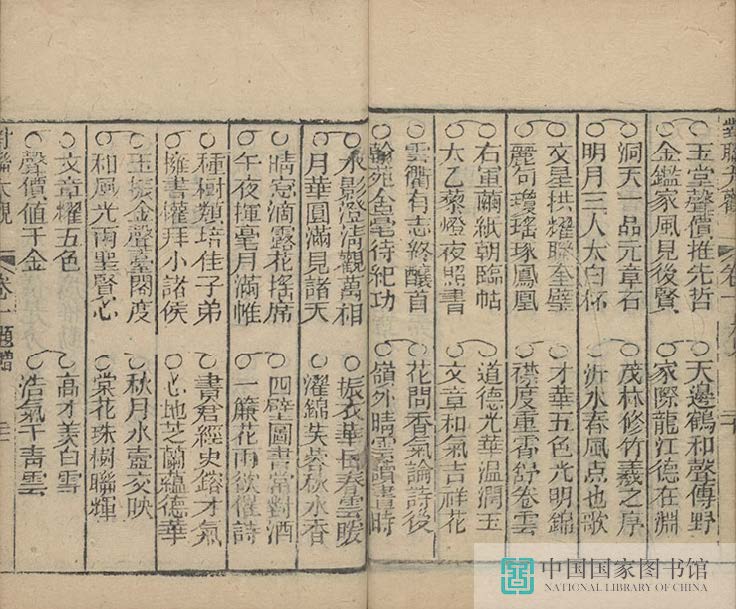 對聯大觀 卷一
玉堂聲價推先哲
金鑑家風見後賢
洞天一品元章石
明月三人太白杯
文星拱耀聯奎璧
麗句瓊瑤琢鳳凰
右軍繭紙朝臨帖
太乙藜燈夜照書
雲衢有志終釀首
翰苑金毫待紀功
天邊鶴和聲傳野
家際龍江德在淵
茂林修竹羲之序
沂水春風点也歌
才華五色光明錦
襟度重霄舒卷雲
道德光華温潤玉
文章和氣吉祥花
花間香氣論詩後
嶺外晴雲讀畫時
水影澄清觀萬相
月華圓滿見諸天
晴窓滴露花搖席
午夜揮毫月滿帷
種樹類培佳子弟
擁書權拜小諸侯
玉振金聲臺閣度
和風光雨聖賢心
文章耀五色
聲價值千金
振衣華岳春雲暖
濯錦芙蓉秋水香
四壁圖書常對酒
一簾花雨欲催詩
書君經史鎔才氣
心地芝蘭蘊德華
秋月水壺交映
棠花珠樹聯輝
高才美白雪
浩氣干青雲
對聯大觀 卷一 題贈
中国国家图书馆
NATIONAL LIBRARY OF CHINA